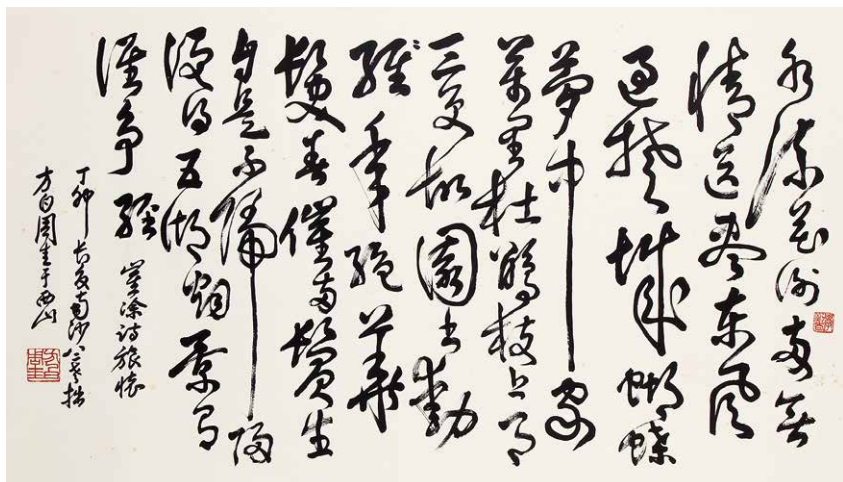 水流花謝兩無
情送盡東風
過楚城蝴蝶
夢中家
萬里杜鵑枝上月
三更故園書動
經年絕華
髮春催兩鬢生
自是不歸歸
便得五湖烟景有
誰爭
崔塗詩旅懷
丁卯長夏南沙八
方白周生于西山